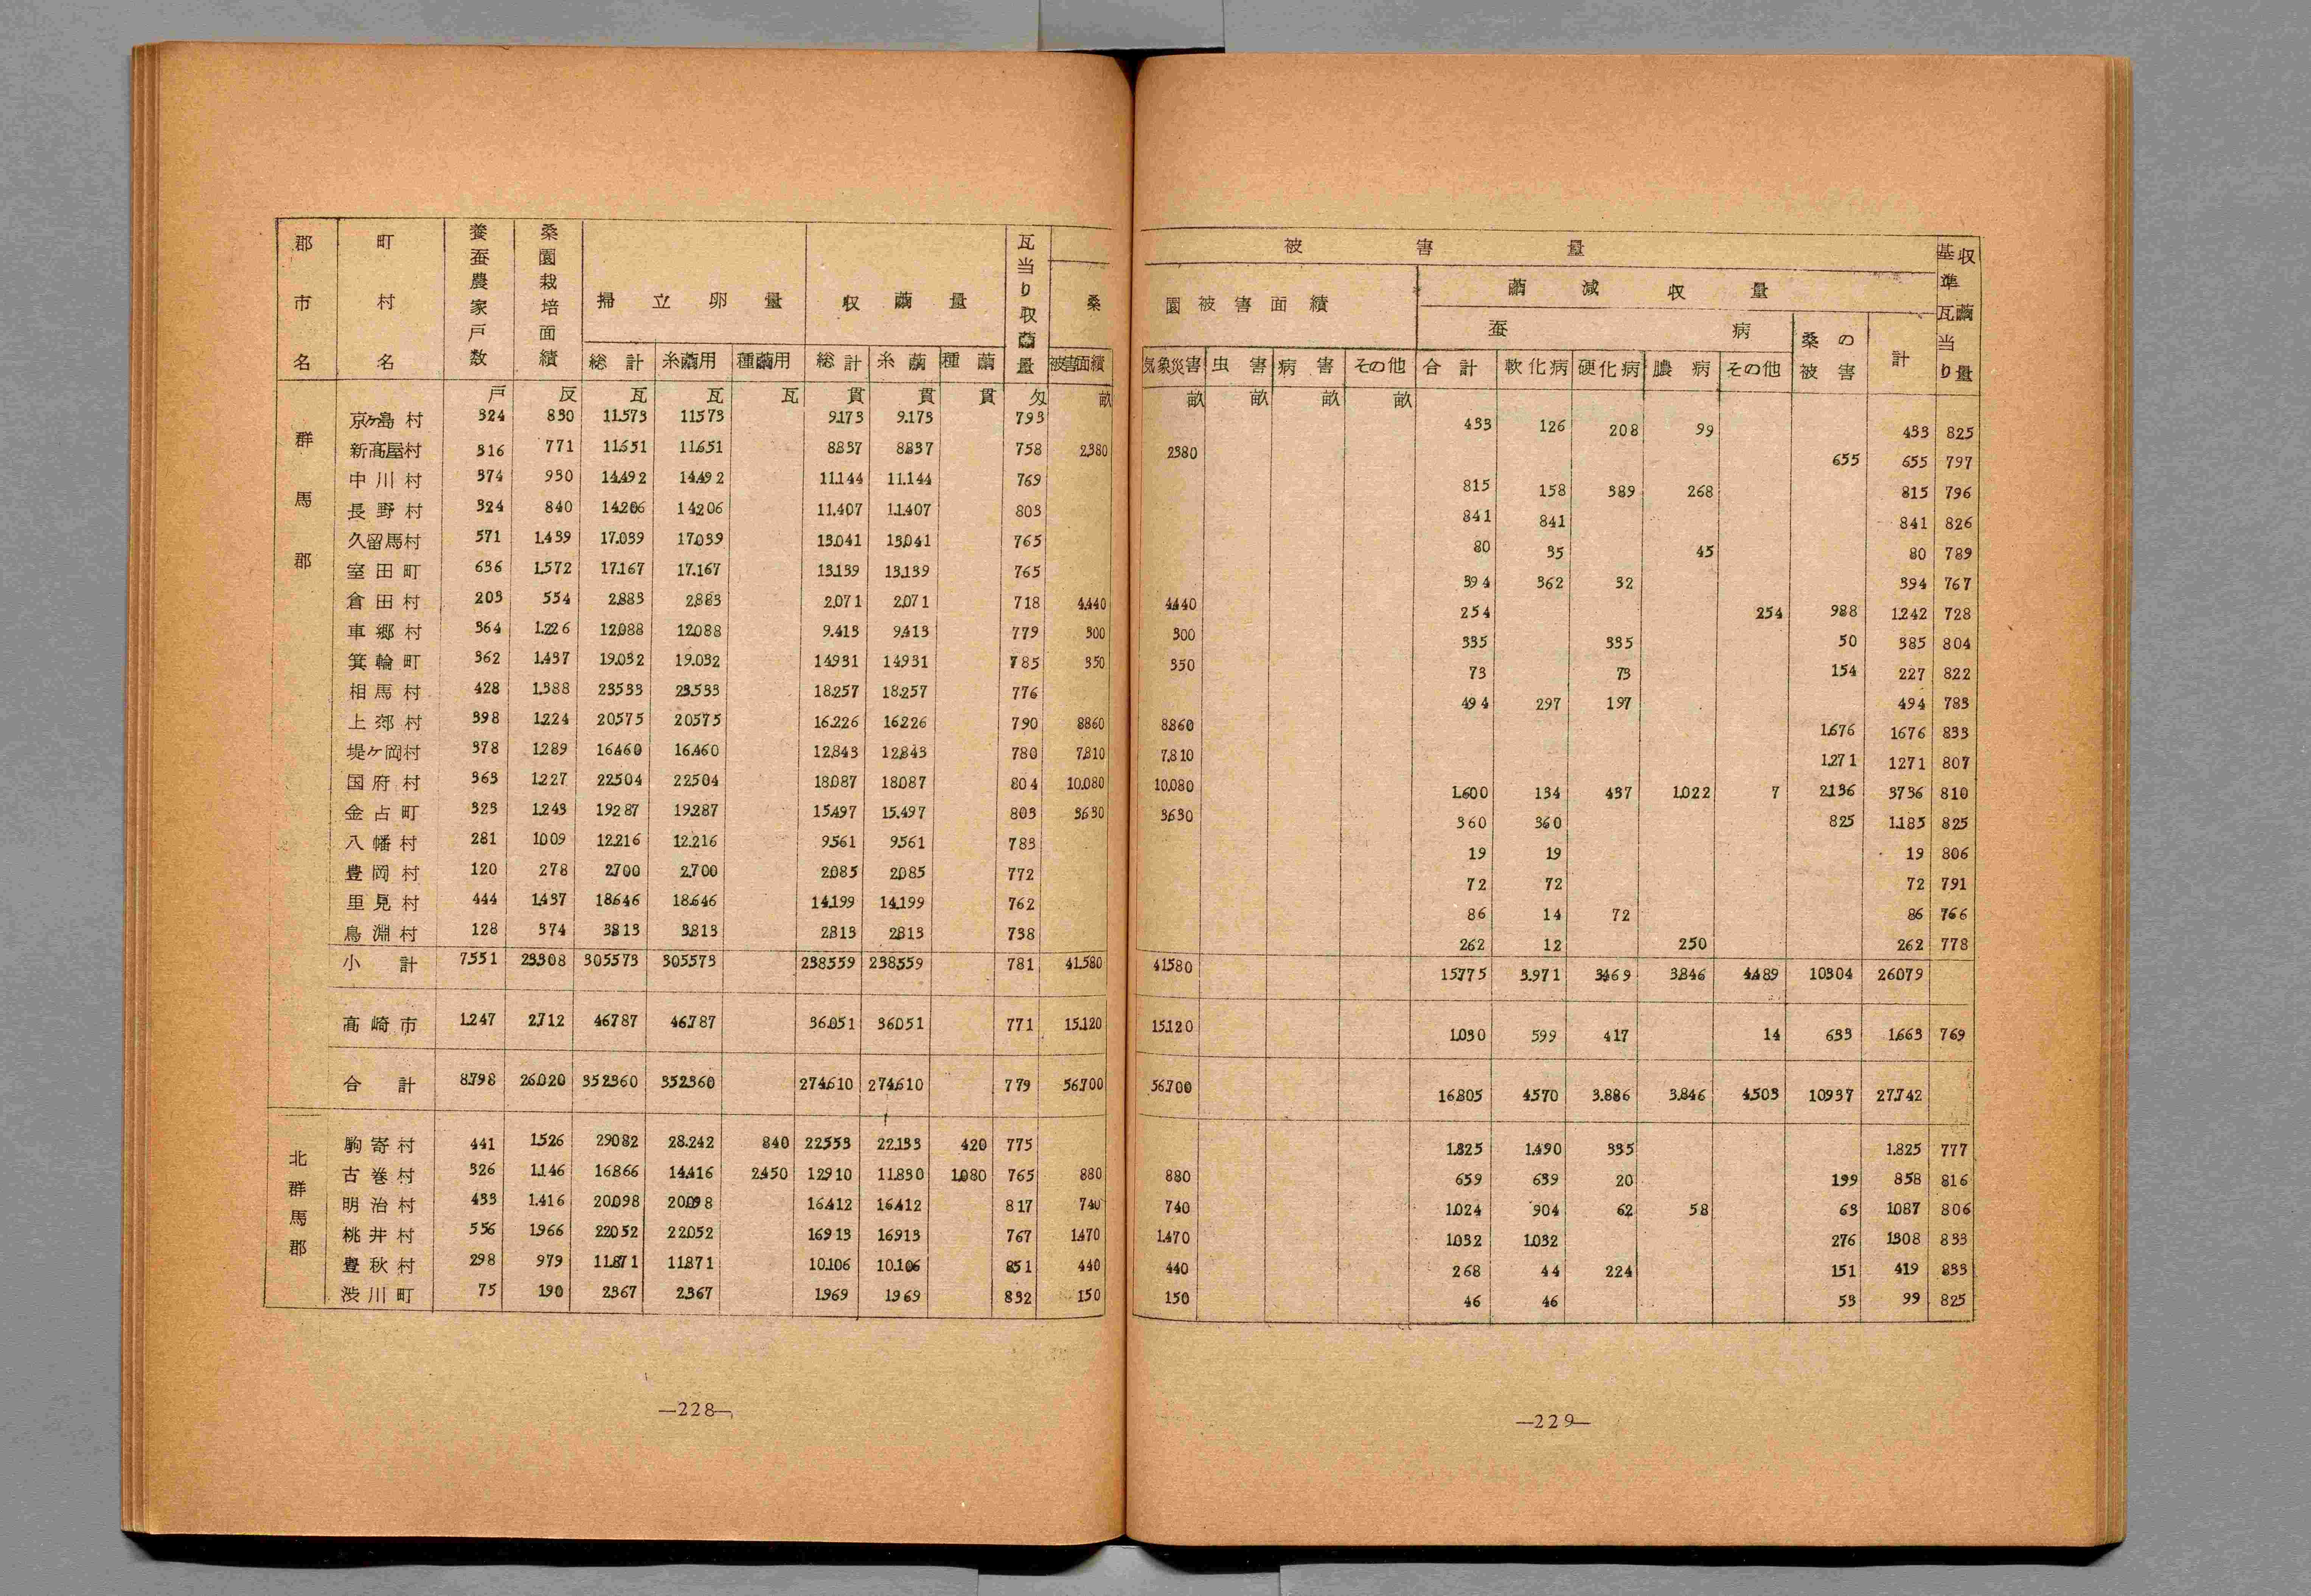 郡市名 町村名 養蚕農家戸数 桑園栽培面績 掃立卵量 収繭量 瓦当り収繭量 桑
総計 糸繭用 種繭用 総計 糸繭 種繭 被害面績
戸 反 瓦 瓦 瓦 貫 貫 貫 匁 畝
群馬郡
京ヶ島村 324 830 11.573 11573 9.173 9.173 793
新高屋村 316 771 11.651 11.651 8837 8837 758 2.380
中川村 374 930 14.492 14.492 11.144 11.144 769
長野村 324 840 14.206 14206 11.407 11.407 803
久留馬村 571 1.439 17.039 17.039 13.041 13.041 765
室田町 636 1.572 17.167 17.167 13.139 13.139 765
倉田村 203 554 2.883 2.883 2.071 2.071 718 4.440
車郷村 364 1.226 12.088 12.088 9.413 9.413 779 300
箕輪町 362 1.437 19.032 19.032 14931 14931 785 350
相馬村 428 1.388 23533 23.533 18.257 18.257 776
上郊村 398 1.224 20.575 20575 16.226 16226 790 8860
堤ヶ岡村 378 1.289 16.460 16.460 12.843 12.843 780 7.810
国府村 363 1.227 22.504 22504 18.087 18.087 804 10.080
金占町 323 1.243 19287 19.287 15.497 15.497 803 3630
八幡村 281 1009 12.216 12.216 9.561 9561 783
豊岡村 120 278 2.700 2.700 2.085 2.085 772
里見村 444 1.437 18.646 18.646 14.199 14.199 762
鳥淵村 128 374 3.813 3.813 2.813 2.813 738
小計 7.551 23.308 305573 305573 238.559 238.559 781 41.580
高崎市 1.247 2.712 46.787 46.787 36.051 36.051 771 15.120
合計 8.798 26.020 352360 352.360 274.610 274.610 779 56.700
北群馬郡
駒寄村 441 1.526 29.082 28.242 840 22.553 22.133 420 775
古巻村 326 1.146 16.866 14.416 2.450 12.910 11.830 1.080 765 880
明治村 433 1.416 20.098 20.098 16.412 16.412 817 740
桃井村 556 1.966 22.052 22.052 16913 16913 767 1.470
豊秋村 298 979 11.871 11.871 10.106 10.106 851 440
渋川町 75 190 2.367 2.367 1.969 1969 832 150
—228—
被害量 基準瓦当り収繭量
園被害面績 繭減収量
蚕病 桑の被害 計
気象災害 虫害 病害 その他 合計 軟化病 硬化病 膿病 その他
畝 畝 畝 畝
433 126 208 99 433 825
2380 655 655 797
815 158 389 268 815 796
841 841 841 826
80 35 45 80 789
394 362 32 394 767
4.440 254 254 988 1.242 728
300 335 335 50 385 804
350 73 73 154 227 822
494 297 197 494 783
8.860 1.676 1676 833
7.810 1.271 1271 807
10.080 1.600 134 437 1.022 7 2.136 3736 810
3630 360 360 825 1.185 825
19 19 19 806
72 72 72 791
86 14 72 86 766
262 12 250 262 778
41580 15.775 3.971 3.469 3.846 4.489 10304 26079
15.120 1.030 599 417 14 633 1.663 769
56.700 16.805 4.570 3.886 3.846 4.503 10937 27.742
1.825 1.490 335 1.825 777
880 659 639 20 199 858 816
740 1.024 904 62 58 63 1087 806
1.470 1.032 1.032 276 1.308 833
440 268 44 224 151 419 833
150 46 46 53 99 825
—229—